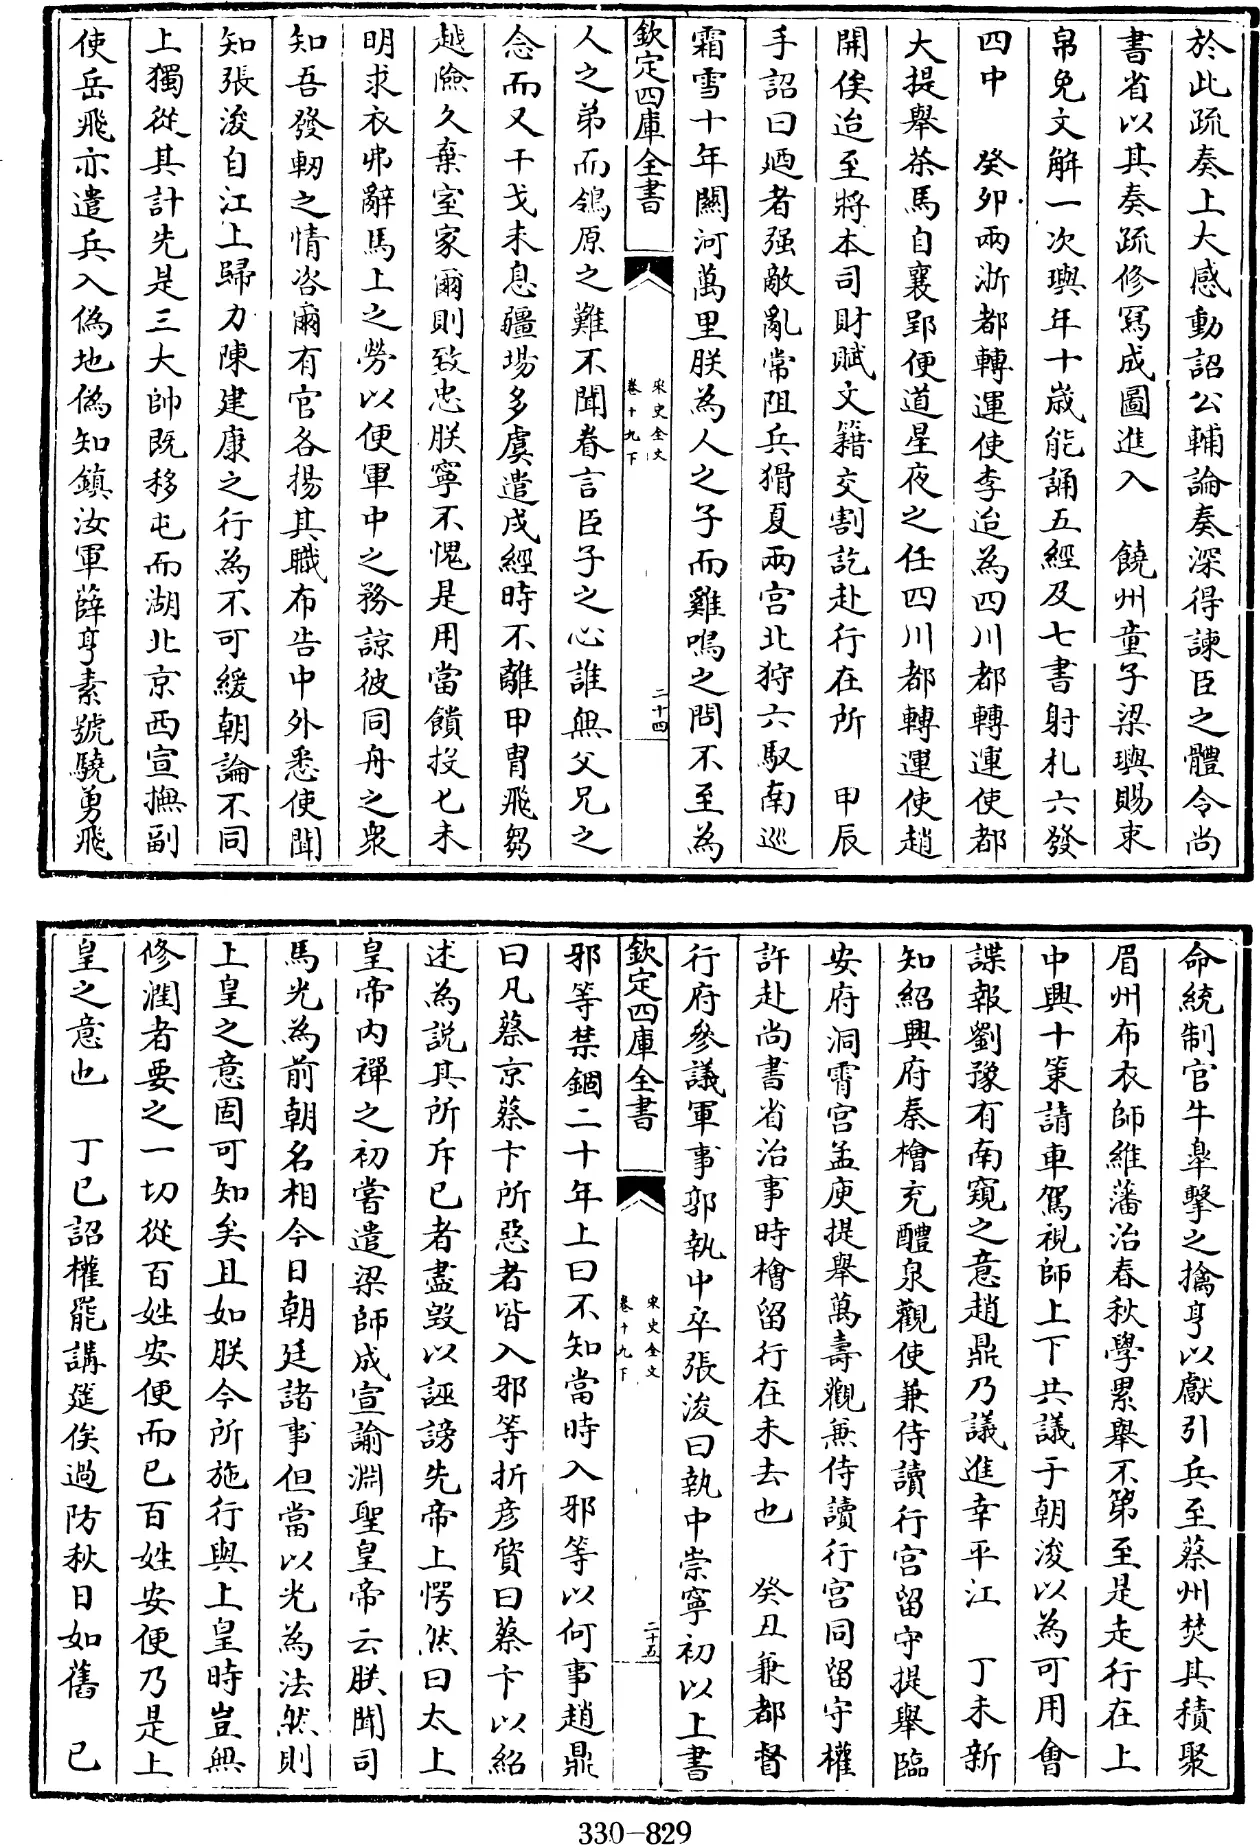 於此疏奏上大感動詔公輔論奏深得諫臣之體令尚
書省以其奏疏修寫成圖進入　饒州童子梁璵賜束
帛免文解一次璵年十歲能誦五經及七書射札六發
四中　癸卯兩浙都轉運使李迨為四川都轉運使都
大提舉茶馬自襄郢便道星夜之任四川都轉運使趙
開俟迨至將本司財賦文籍交割訖赴行在所　甲辰
手詔曰廼者强敵亂常阻兵猾夏兩宮北狩六馭南巡
霜雪十年關河萬里朕為人之子而雞鳴之問不至為
欽定四庫全書
宋史全文
卷十九下
二十四
人之弟而鴒原之難不聞眷言臣子之心誰無父兄之
念而又干戈未息疆場多虞遣戍經時不離甲胄飛芻
越險久棄室家爾則致忠朕寧不愧是用當饋投匕未
明求衣弗辭馬上之勞以便軍中之務諒彼同舟之衆
知吾發軔之情咨爾有官各揚其職布告中外悉使聞
知張浚自江上歸力陳建康之行為不可緩朝論不同
上獨從其計先是三大帥既移屯而湖北京西宣撫副
使岳飛亦遣兵入偽地偽知鎮汝軍薛亨素號驍勇飛
命統制官牛臯擊之擒亨以獻引兵至蔡州焚其積聚
眉州布衣師維藩治春秋學累舉不第至是走行在上
中興十策請車駕視師上下共議于朝浚以為可用會
諜報劉豫有南窺之意趙鼎乃議進幸平江　丁未新
知紹興府秦檜充醴泉觀使兼侍讀行宮留守提舉臨
安府洞霄宮孟庾提舉萬壽觀兼侍讀行宮同留守權
許赴尚書省治事時檜留行在未去也　癸丑兼都督
行府參議軍事郭執中卒張浚曰執中崇寧初以上書
欽定四庫全書
宋史全文
卷十九下
二十五
邪等禁錮二十年上曰不知當時入邪等以何事趙鼎
曰凡蔡京蔡卞所惡者皆入邪等折彥質曰蔡卞以紹
述為說其所斥已者盡毀以誣謗先帝上愕然曰太上
皇帝內禪之初嘗遣梁師成宣諭淵聖皇帝云朕聞司
馬光為前朝名相今日朝廷諸事但當以光為法然則
上皇之意固可知矣且如朕今所施行與上皇時豈無
修潤者要之一切從百姓安便而已百姓安便乃是上
皇之意也　丁巳詔權罷講筵俟過防秋日如舊　己
330-829